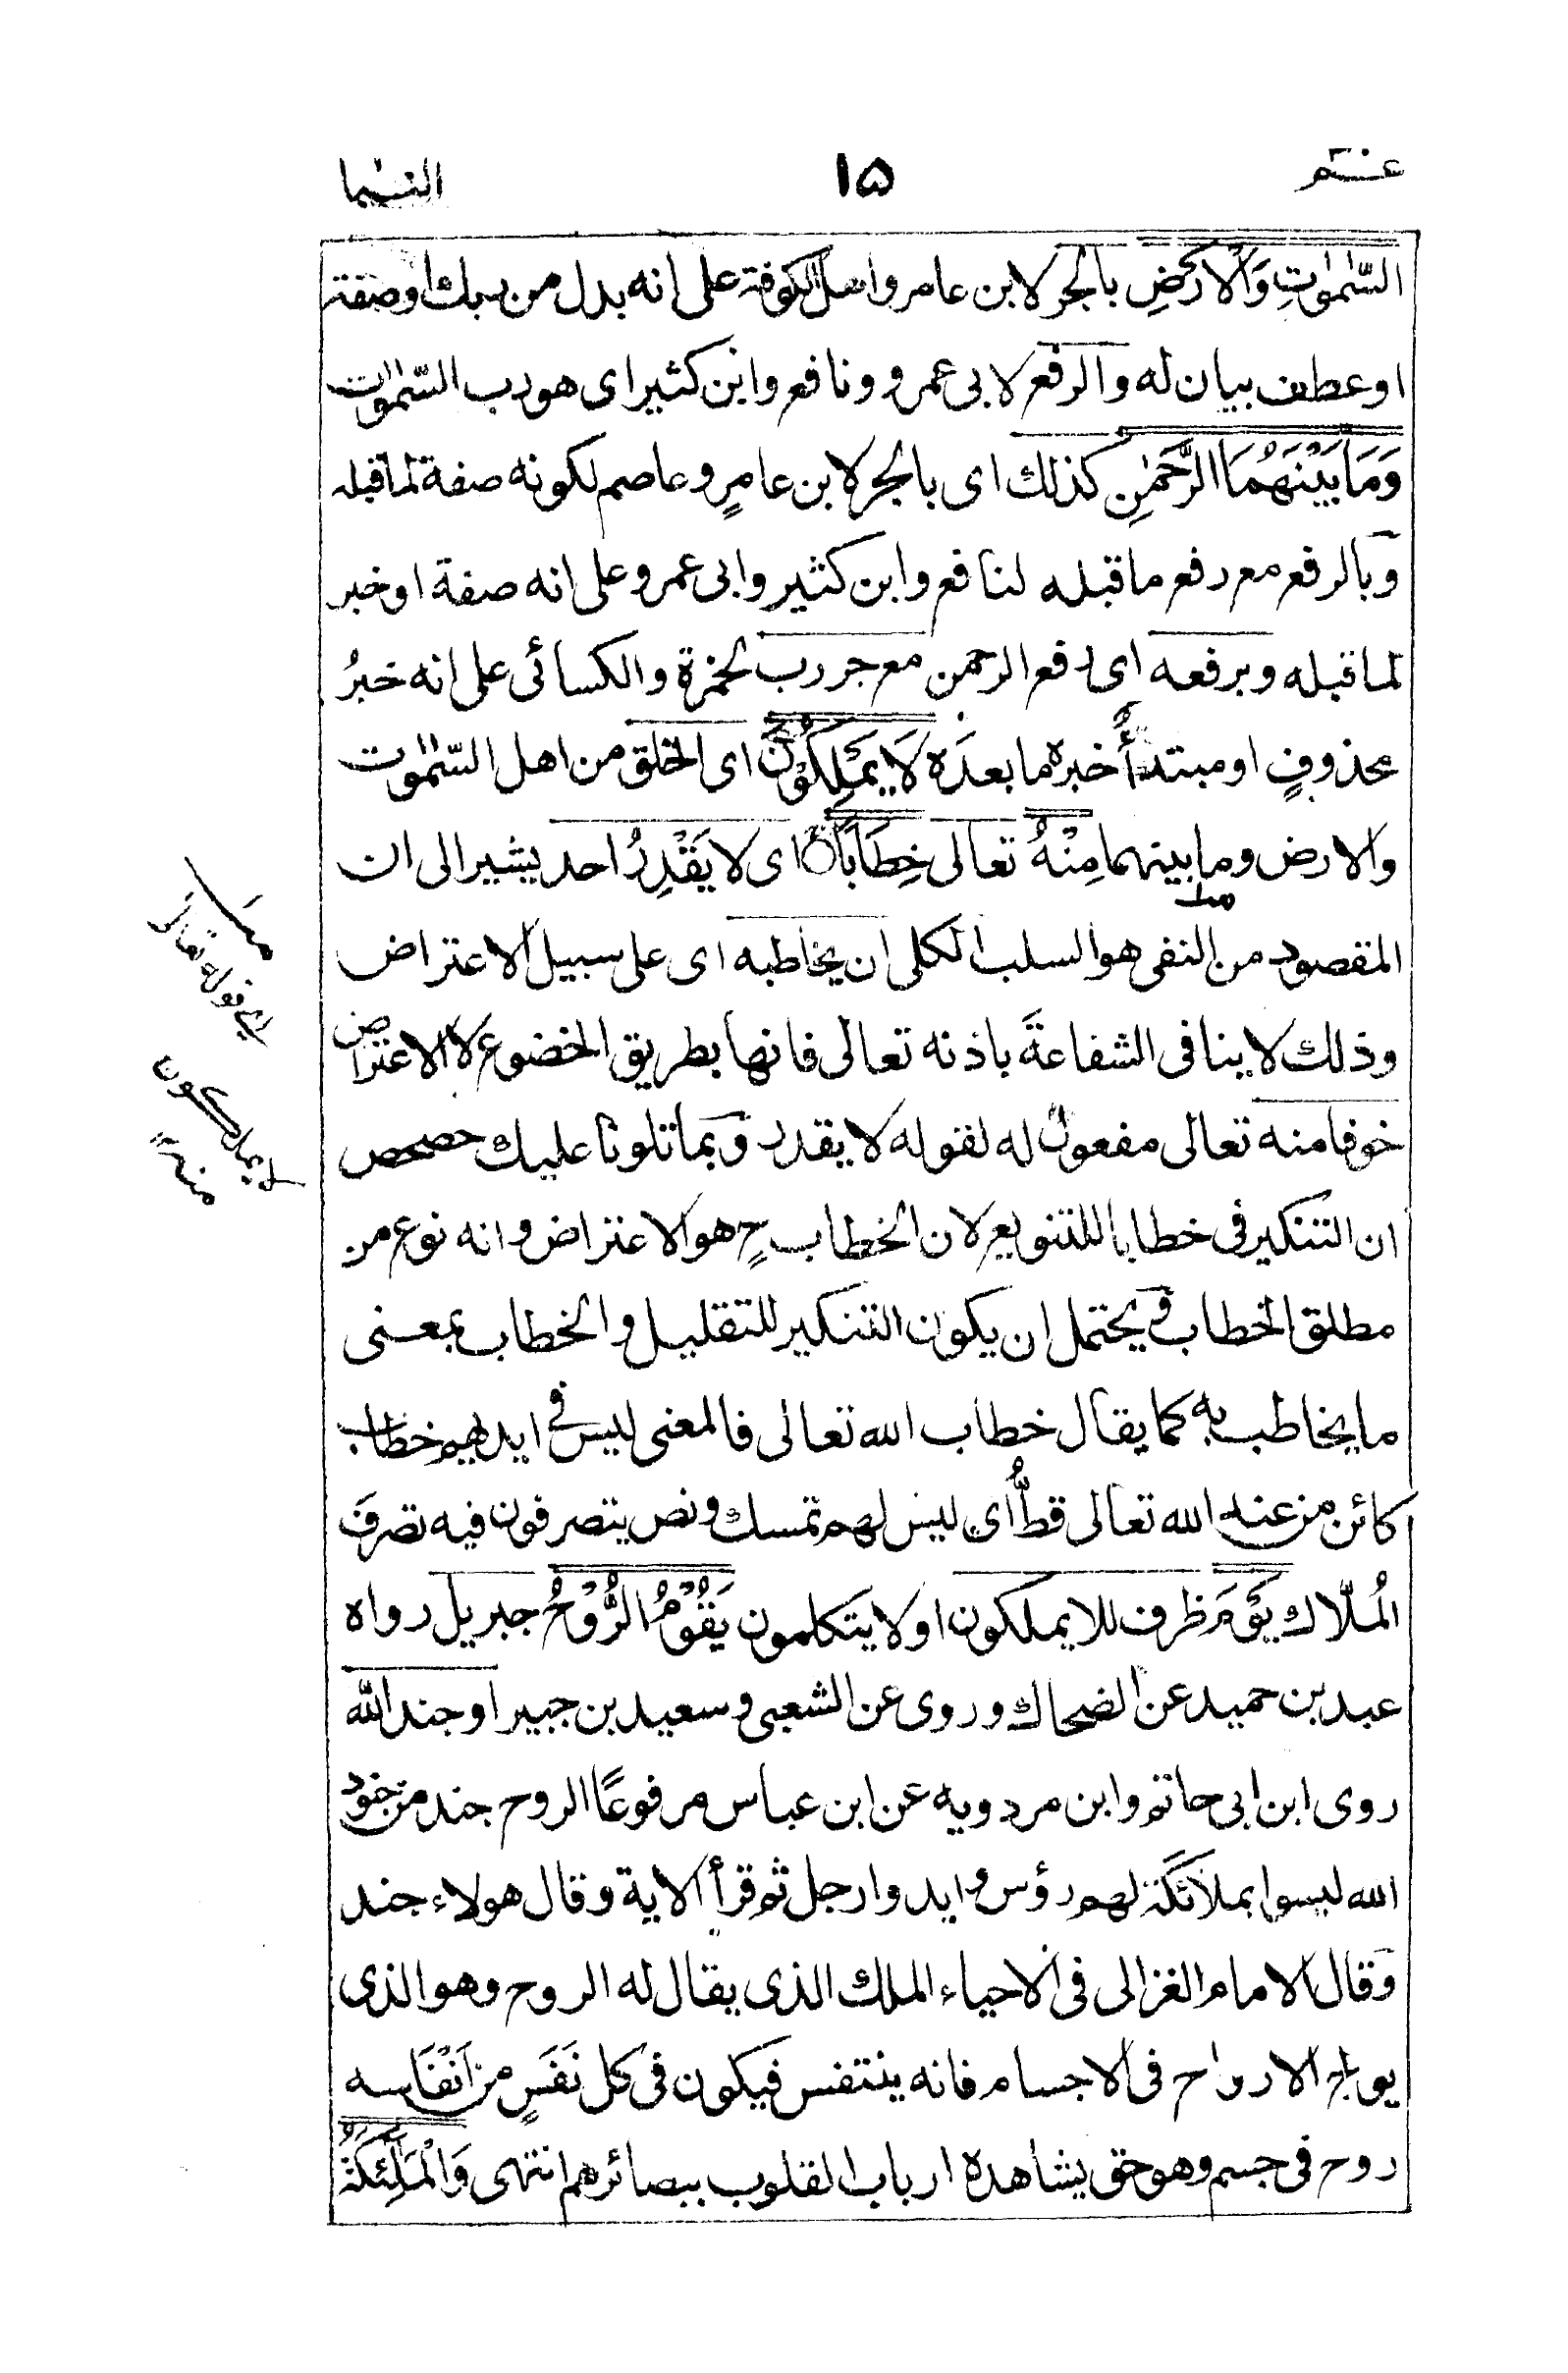 عـم
۱۵
النبا
السّمٰوٰتِ وَالْاَرْضِ بالجر لابن عامر واهل الكوفة على انه بدل من ربك او صفة
او عطف بيان له والرفع لابى عمرو ونافع وابن كثير اى هو رب السّمٰوٰت
وَمَا بَيْنَهُمَا الرَّحْمٰنِ كذلك اى بالجر لابن عامرٍ وعاصم لكونه صفة لما قبله
وبالرفع مع رفع ما قبله لنافع وابن كثير وابى عمرو على انه صفة او خبر
لما قبله وبرفعه اى رفع الرحمن مع جر رب لحمزة والكسائى على انه خبرُ
محذوفٍ او مبتدأٌ خبره ما بعدَه لَا يَمْلِكُوْنَ اى الخلق من اهل السّمٰوٰت
والارض وما بينهما مِنْهُ تعالى خِطَابًا اى لا يَقْدِرُ احد يشير الى ان
المقصود من النفى هو السلب الكلى ان يخاطبه اى على سبيل الاعتراض
وذلك لا ينافى الشفاعةَ باذنه تعالى فانها بطريق الخضوع لا الاعتراض
خوفا منه تعالى مفعول له لقوله لا يقدر وبما تلونا عليك حصحص
ان التنكير فى خطابا للتنويع لان الخطاب ح هو الاعتراض وانه نوع من
مطلق الخطاب ويحتمل ان يكون التنكير للتقليل والخطاب بمعنى
ما يخاطب به كما يقال خطاب الله تعالى فالمعنى ليس فى ايديهم خطاب
كائن من عند الله تعالى قطُّ اى ليس لهم تمسك ونص يتصرفون فيه تصرفَ
المُلّاك يَوْمَ ظرف للا يملكون او لا يتكلمون يَقُوْمُ الرُّوْحُ جبريل رواه
عبد بن حميد عن الضحاك وروى عن الشعبى وسعيد بن جبير او جند الله
روى ابن ابى حاتم وابن مردويه عن ابن عباس مرفوعًا الروح جند من جنود
الله ليسوا بملائكة لهم رؤس وايد وارجل ثم قرأ الاية وقال هولاء جند
وقال الامام الغزالى فى الاحياء الملك الذى يقال له الروح وهو الذى
يولج الارواح فى الاجسام فانه يتنفس فيكون فى كل نَفَسٍ من اَنْفَاسه
روح فى جسم وهو حق يشاهده ارباب القلوب ببصائرهم انتهى وَالْمَلٰٓئِكَةُ
اى قوله تعالى
لا يملكون
منه ۱۲